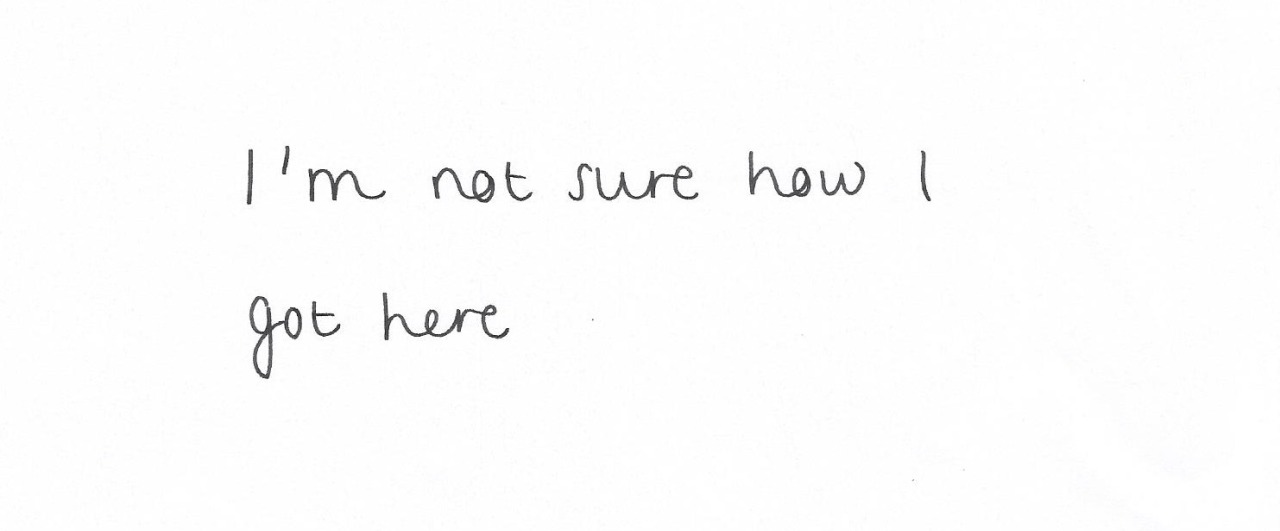 I'm not sure how I
got here